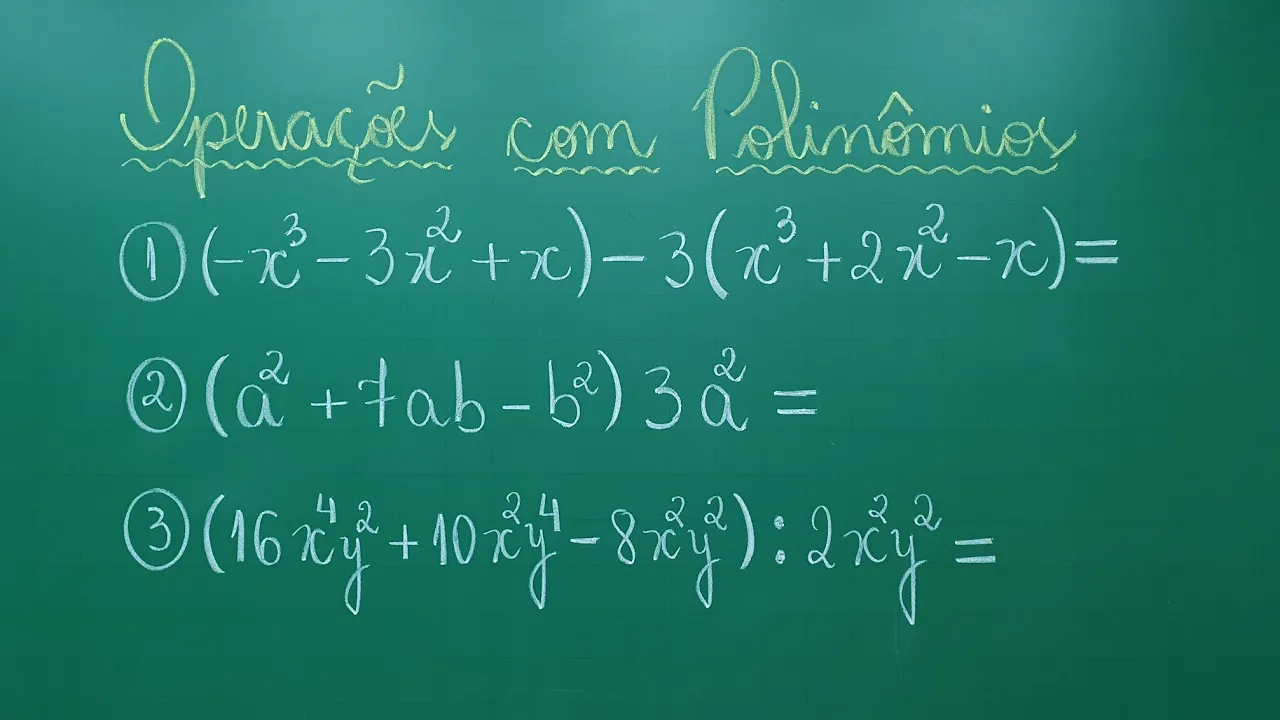 Operações com Polinômios
① (-x³ - 3x² + x) - 3(x³ + 2x² - x) =
② (a² + 7ab - b²) 3a² =
③ (16x⁴y² + 10x²y⁴ - 8x²y²) : 2x²y² =